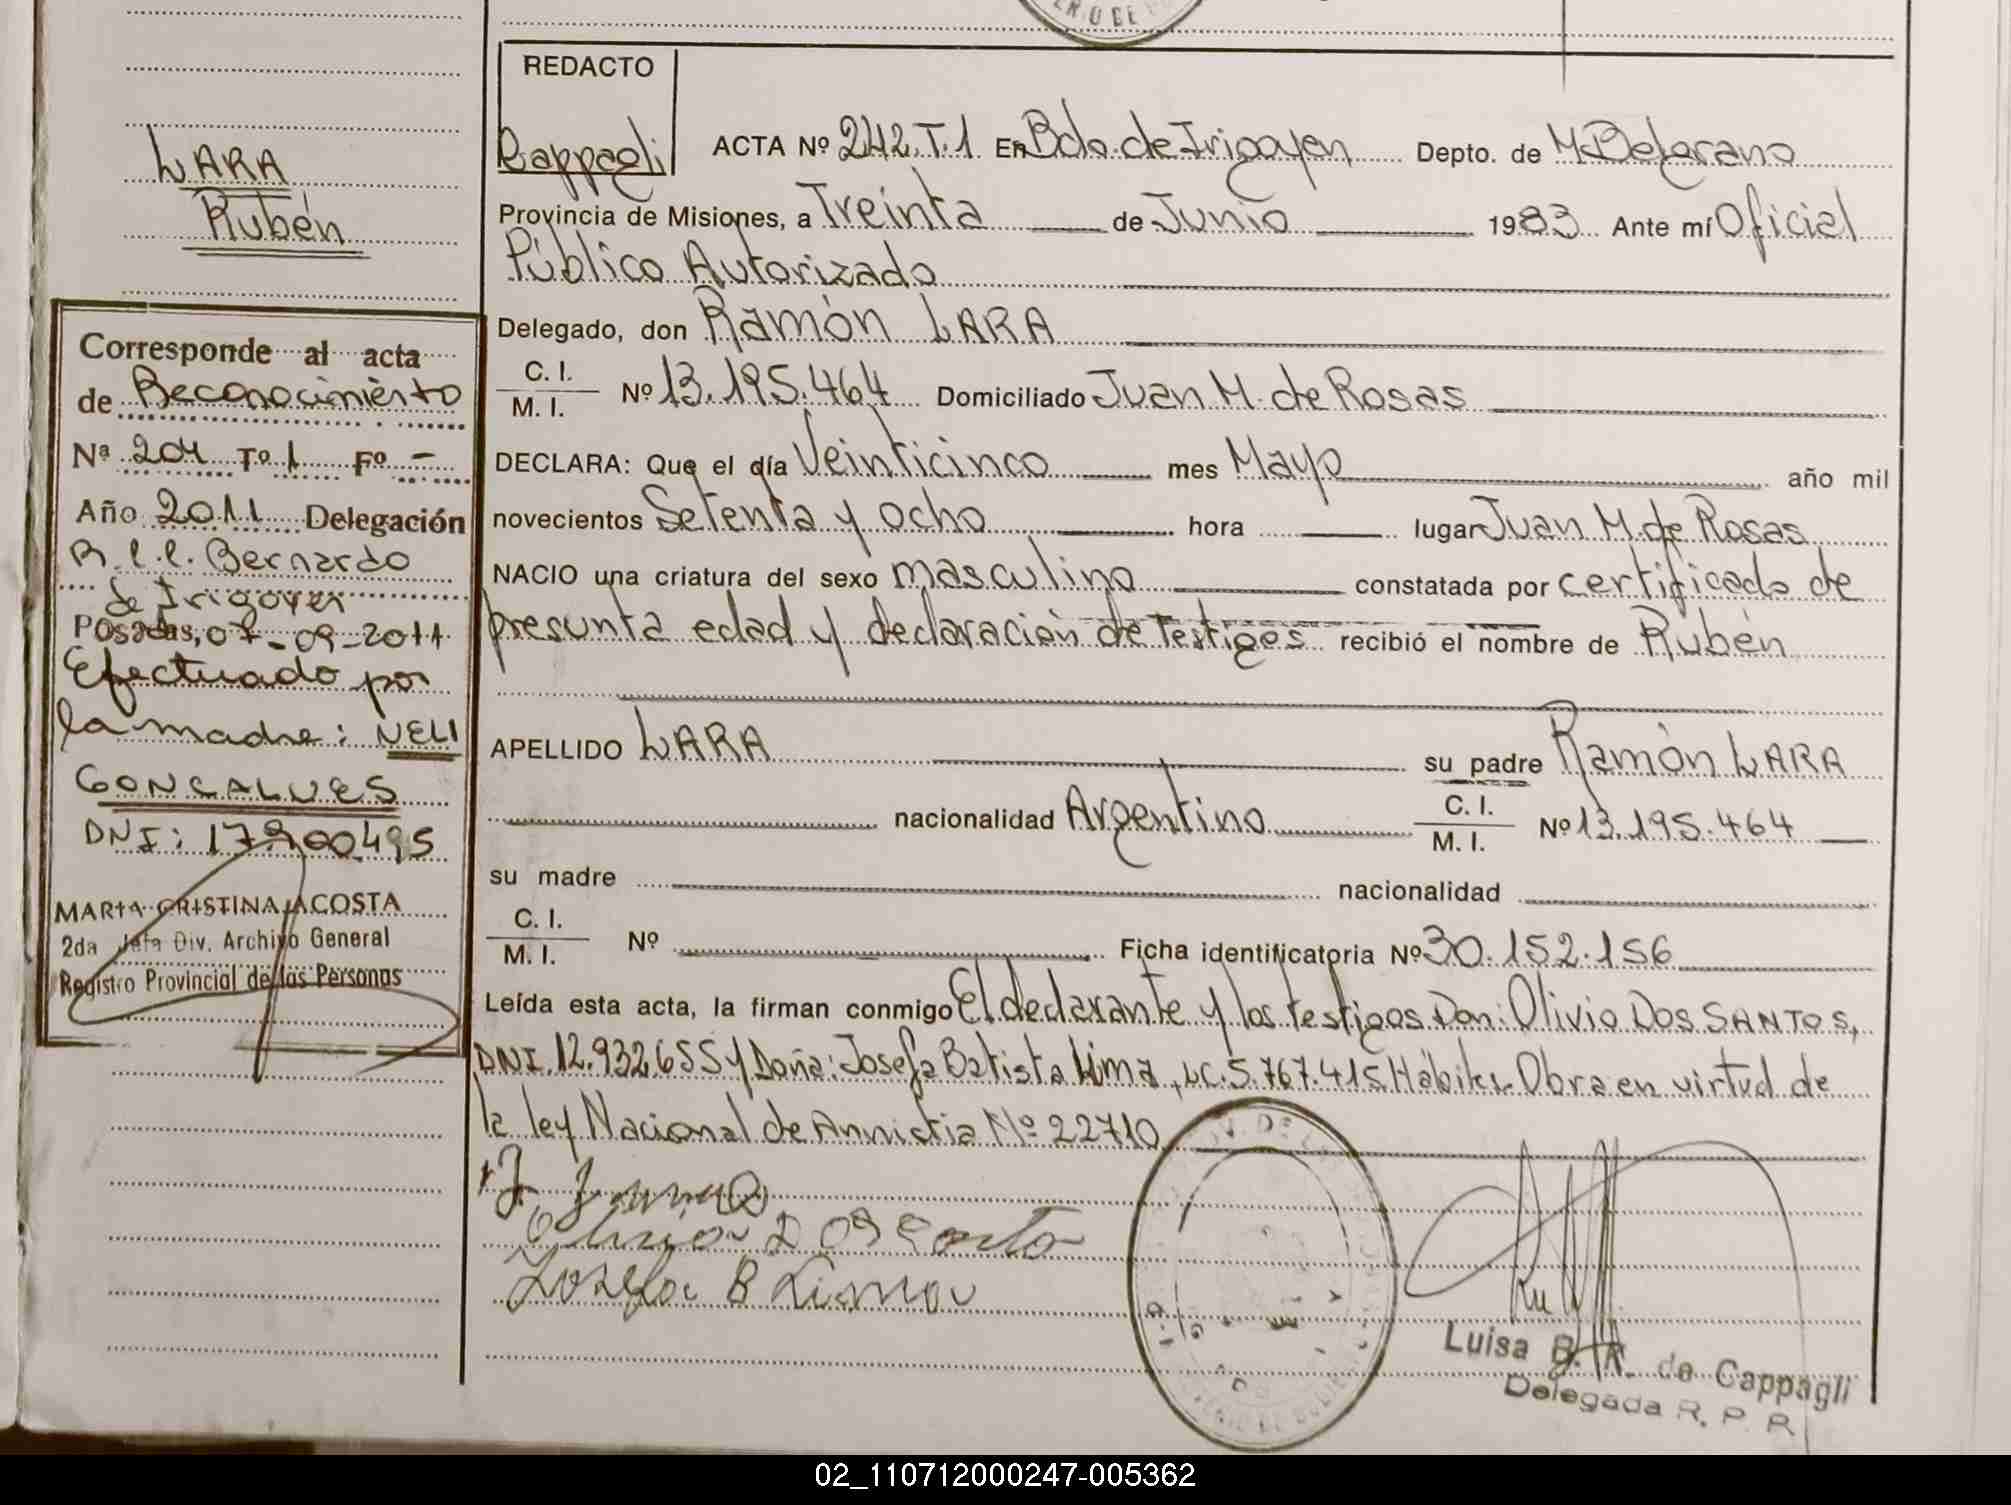 ERIO DE
LARA
Rubén
Corresponde al acta
de Reconocimiento
Nª 204 Tº 1 Fº -
Año 2011 Delegación
R.l.l. Bernardo
de Irigoyen
Posadas, 07-09-2011
Efectuado por
la madre: NELI
GONCALVES
DNI: 17.900.495
MARIA CRISTINA ACOSTA
2da Jefa Div. Archivo General
Registro Provincial de las Personas
REDACTO
Cappagli
ACTA Nº 242.T.1 En Bdo. de Irigoyen Depto. de M. Belgrano
Provincia de Misiones, a Treinta de Junio 1983 Ante mí Oficial
Público Autorizado
Delegado, don Ramón LARA
C. I.
M. I. Nº 13.195.464 Domiciliado Juan M. de Rosas
DECLARA: Que el día Veinticinco mes Mayo año mil
novecientos Setenta y ocho hora lugar Juan M. de Rosas
NACIO una criatura del sexo masculino constatada por certificado de
presunta edad y declaración de testigos recibió el nombre de Rubén
APELLIDO LARA su padre Ramón LARA
nacionalidad Argentino C. I. M. I. Nº 13.195.464
su madre nacionalidad
C. I.
M. I. Nº Ficha identificatoria Nº 30.152.156
Leída esta acta, la firman conmigo El declarante y los testigos Don: Olivio DOS SANTOS,
DNI. 12.932.655 y Doña: Josefa Batista Lima, LC. 5.767.415 Hábiles. Obra en virtud de
la ley Nacional de Amnistia Nº 22710
Josefa B Lima
Luisa B. A. de Cappagli
Delegada R. P. P.
02_110712000247-005362